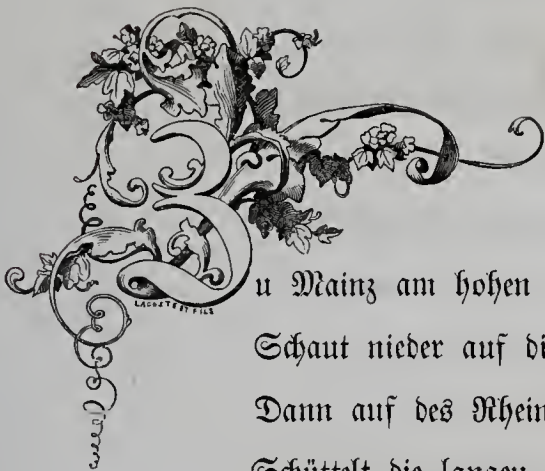 Zu Mainz am hohen
Schaut nieder auf di
Dann auf des Rhein
Schüttelt die langen